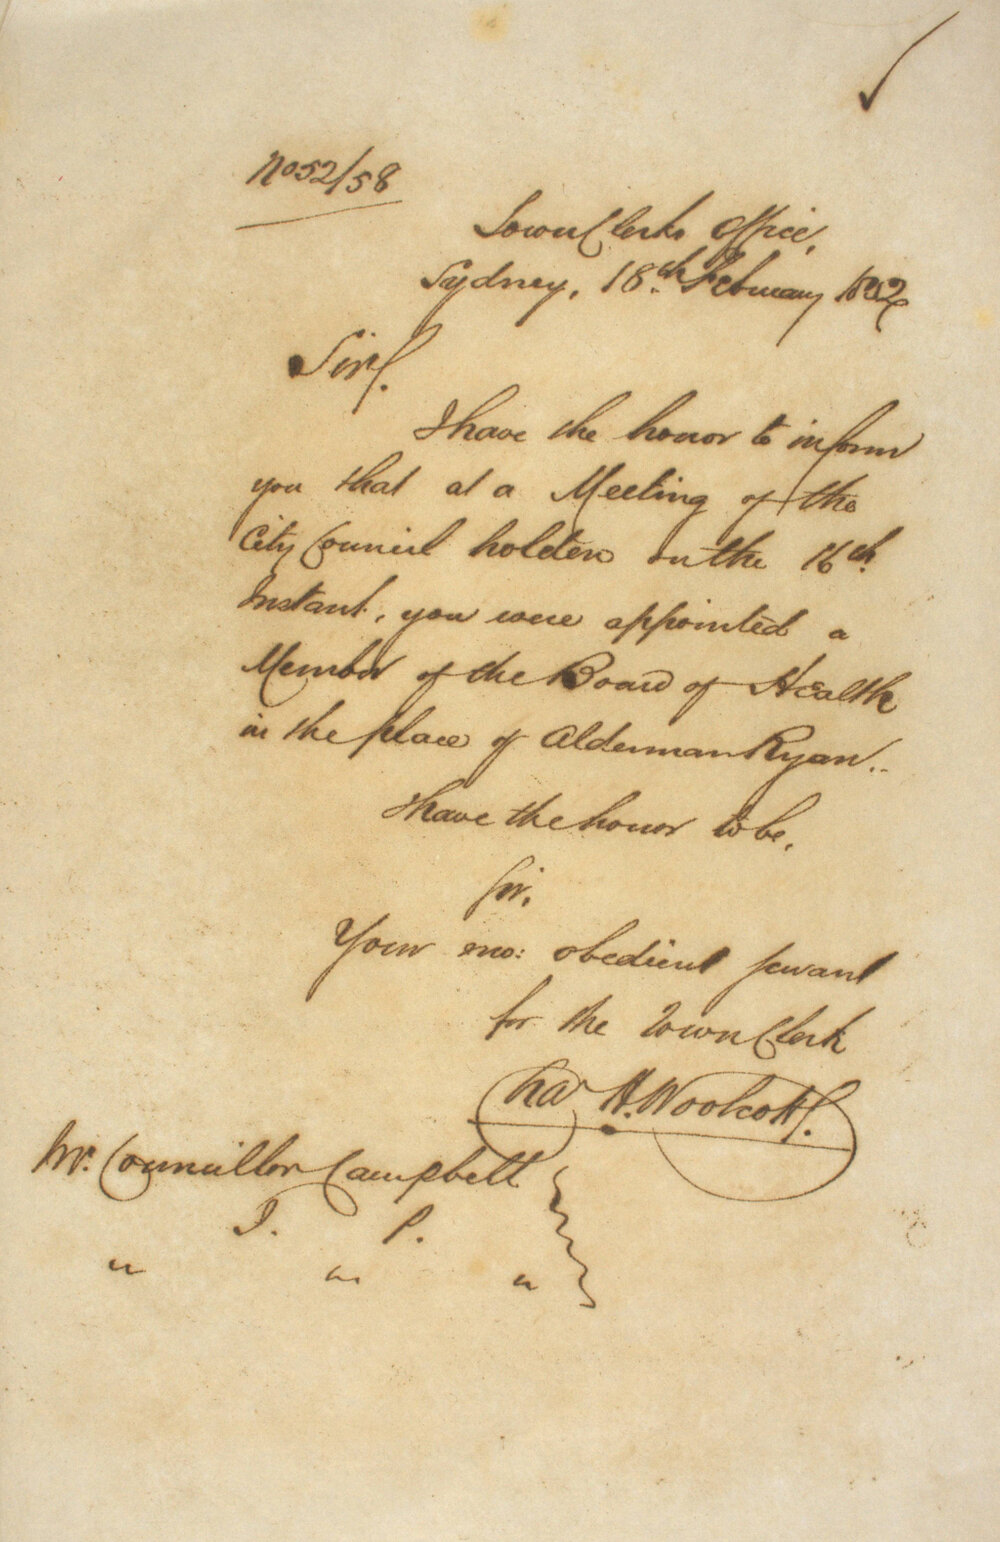 No 52/58
Town Clerks Office,
Sydney, 18th February 1852
Sir,
I have the honor to inform
you that at a Meeting of the
City Council holden on the 16th
Instant, you were appointed a
Member of the Board of Health
in the place of Alderman Ryan.
I have the honor to be,
Sir,
Your mo: obedient servant
for the Town Clerk
Chas H. Woolcott.
Mr. Councillor Campbell
J. P.
" " "